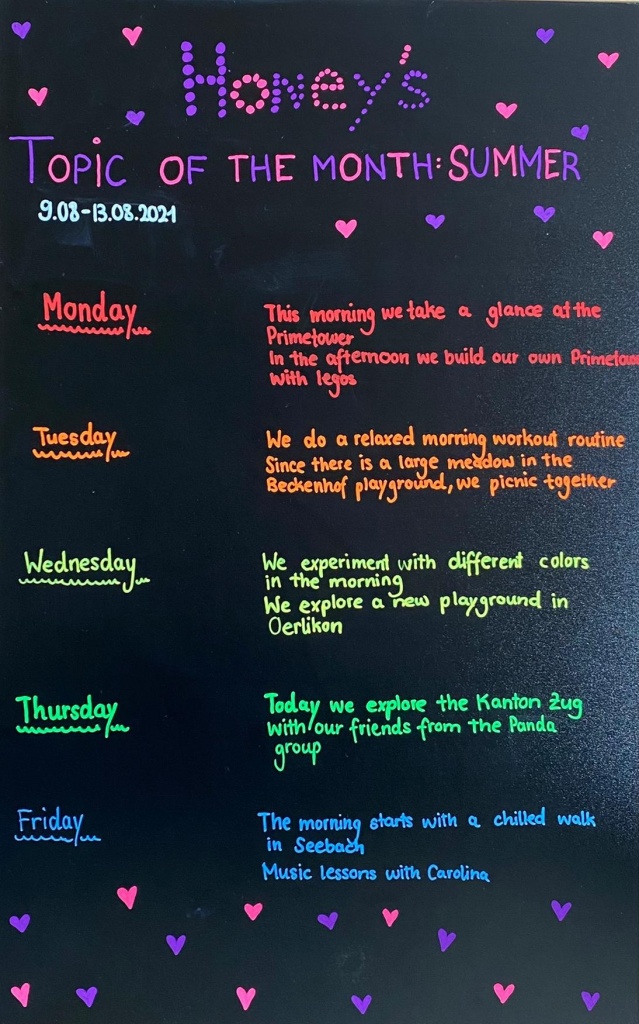 Honey's
TOPIC OF THE MONTH: SUMMER
9.08-13.08.2021
Monday
This morning we take a glance at the
Primetower
In the afternoon we build our own Primetow
with legos
Tuesday
We do a relaxed morning workout routine
Since there is a large meadow in the
Beckenhof playground, we picnic together
Wednesday
We experiment with different colors
in the morning
We explore a new playground in
Oerlikon
Thursday
Today we explore the Kanton Zug
with our friends from the Panda
group
Friday
The morning starts with a chilled walk
in Seebach
Music lessons with Carolina